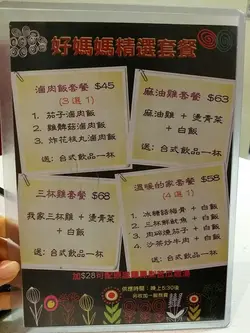 好媽媽精選套餐
滷肉飯套餐 $45
(3選1)
1. 茄子滷肉飯
2. 雞髀菇滷肉飯
3. 炸花枝丸滷肉飯
送: 台式飲品一杯
麻油雞套餐 $63
麻油雞 + 燙青菜
+ 白飯
送: 台式飲品一杯
三杯雞套餐 $68
我家三杯雞 + 燙青菜
+ 白飯
送: 台式飲品一杯
溫暖的家套餐 $58
(4選1)
1. 冰糖豬腳 + 白飯
2. 三杯鮮魷魚 + 白飯
3. 肉碎燒茄子 + 白飯
4. 沙茶炒牛肉 + 白飯
送: 台式飲品一杯
加$28可配
供應時間: 晚上5:30後
另收加一服務費